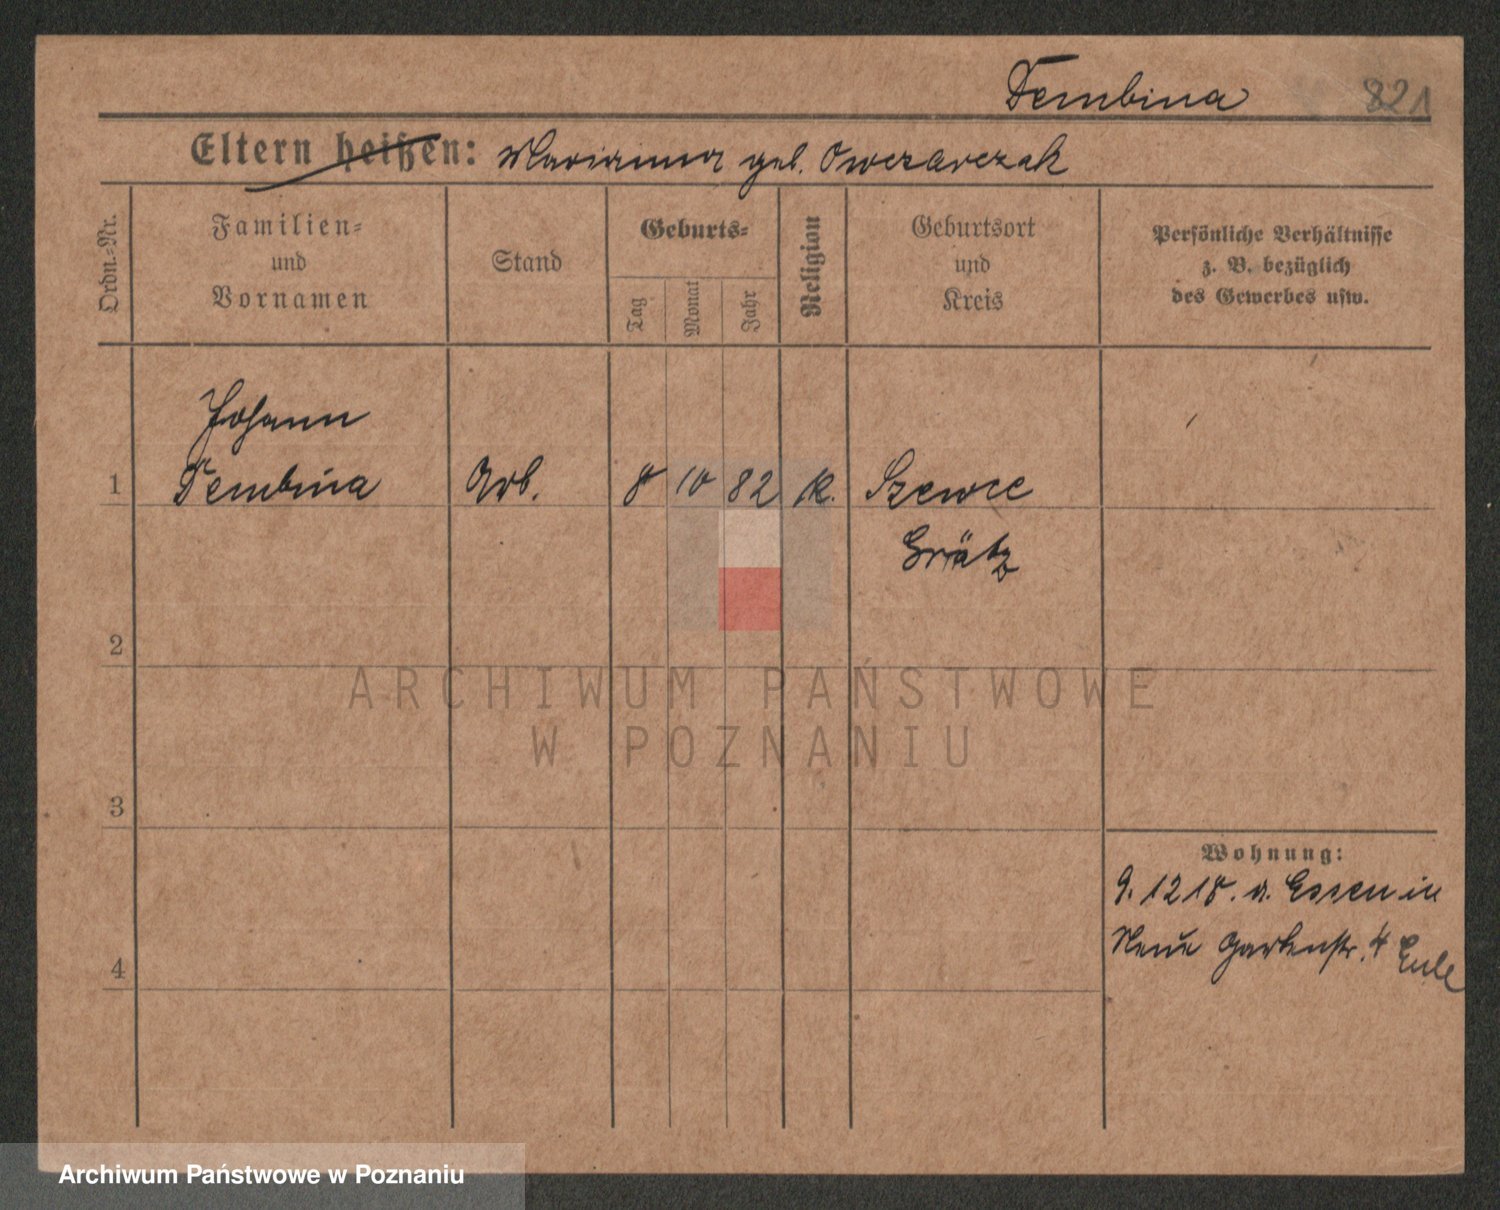 Dembina 821
Eltern heißen: Marianna geb. Owczarczak
Ordn.-Nr.
Familien-
und
Vornamen
Stand
Geburts-
Tag
Monat
Jahr
Religion
Geburtsort
und
Kreis
Persönliche Verhältnisse
z. B. bezüglich
des Gewerbes usw.
Johann
1 Dembina Arb. 8 10 82 K. Szewce
Grätz
2
ARCHIWUM PAŃSTWOWE
W POZNANIU
3
Wohnung:
9.1218. a. Essen in
Neue Gartenstr. 4
4
Archiwum Państwowe w Poznaniu